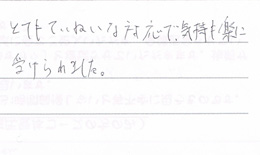 とてもていねいな対応で、気持も楽に
受けられました。